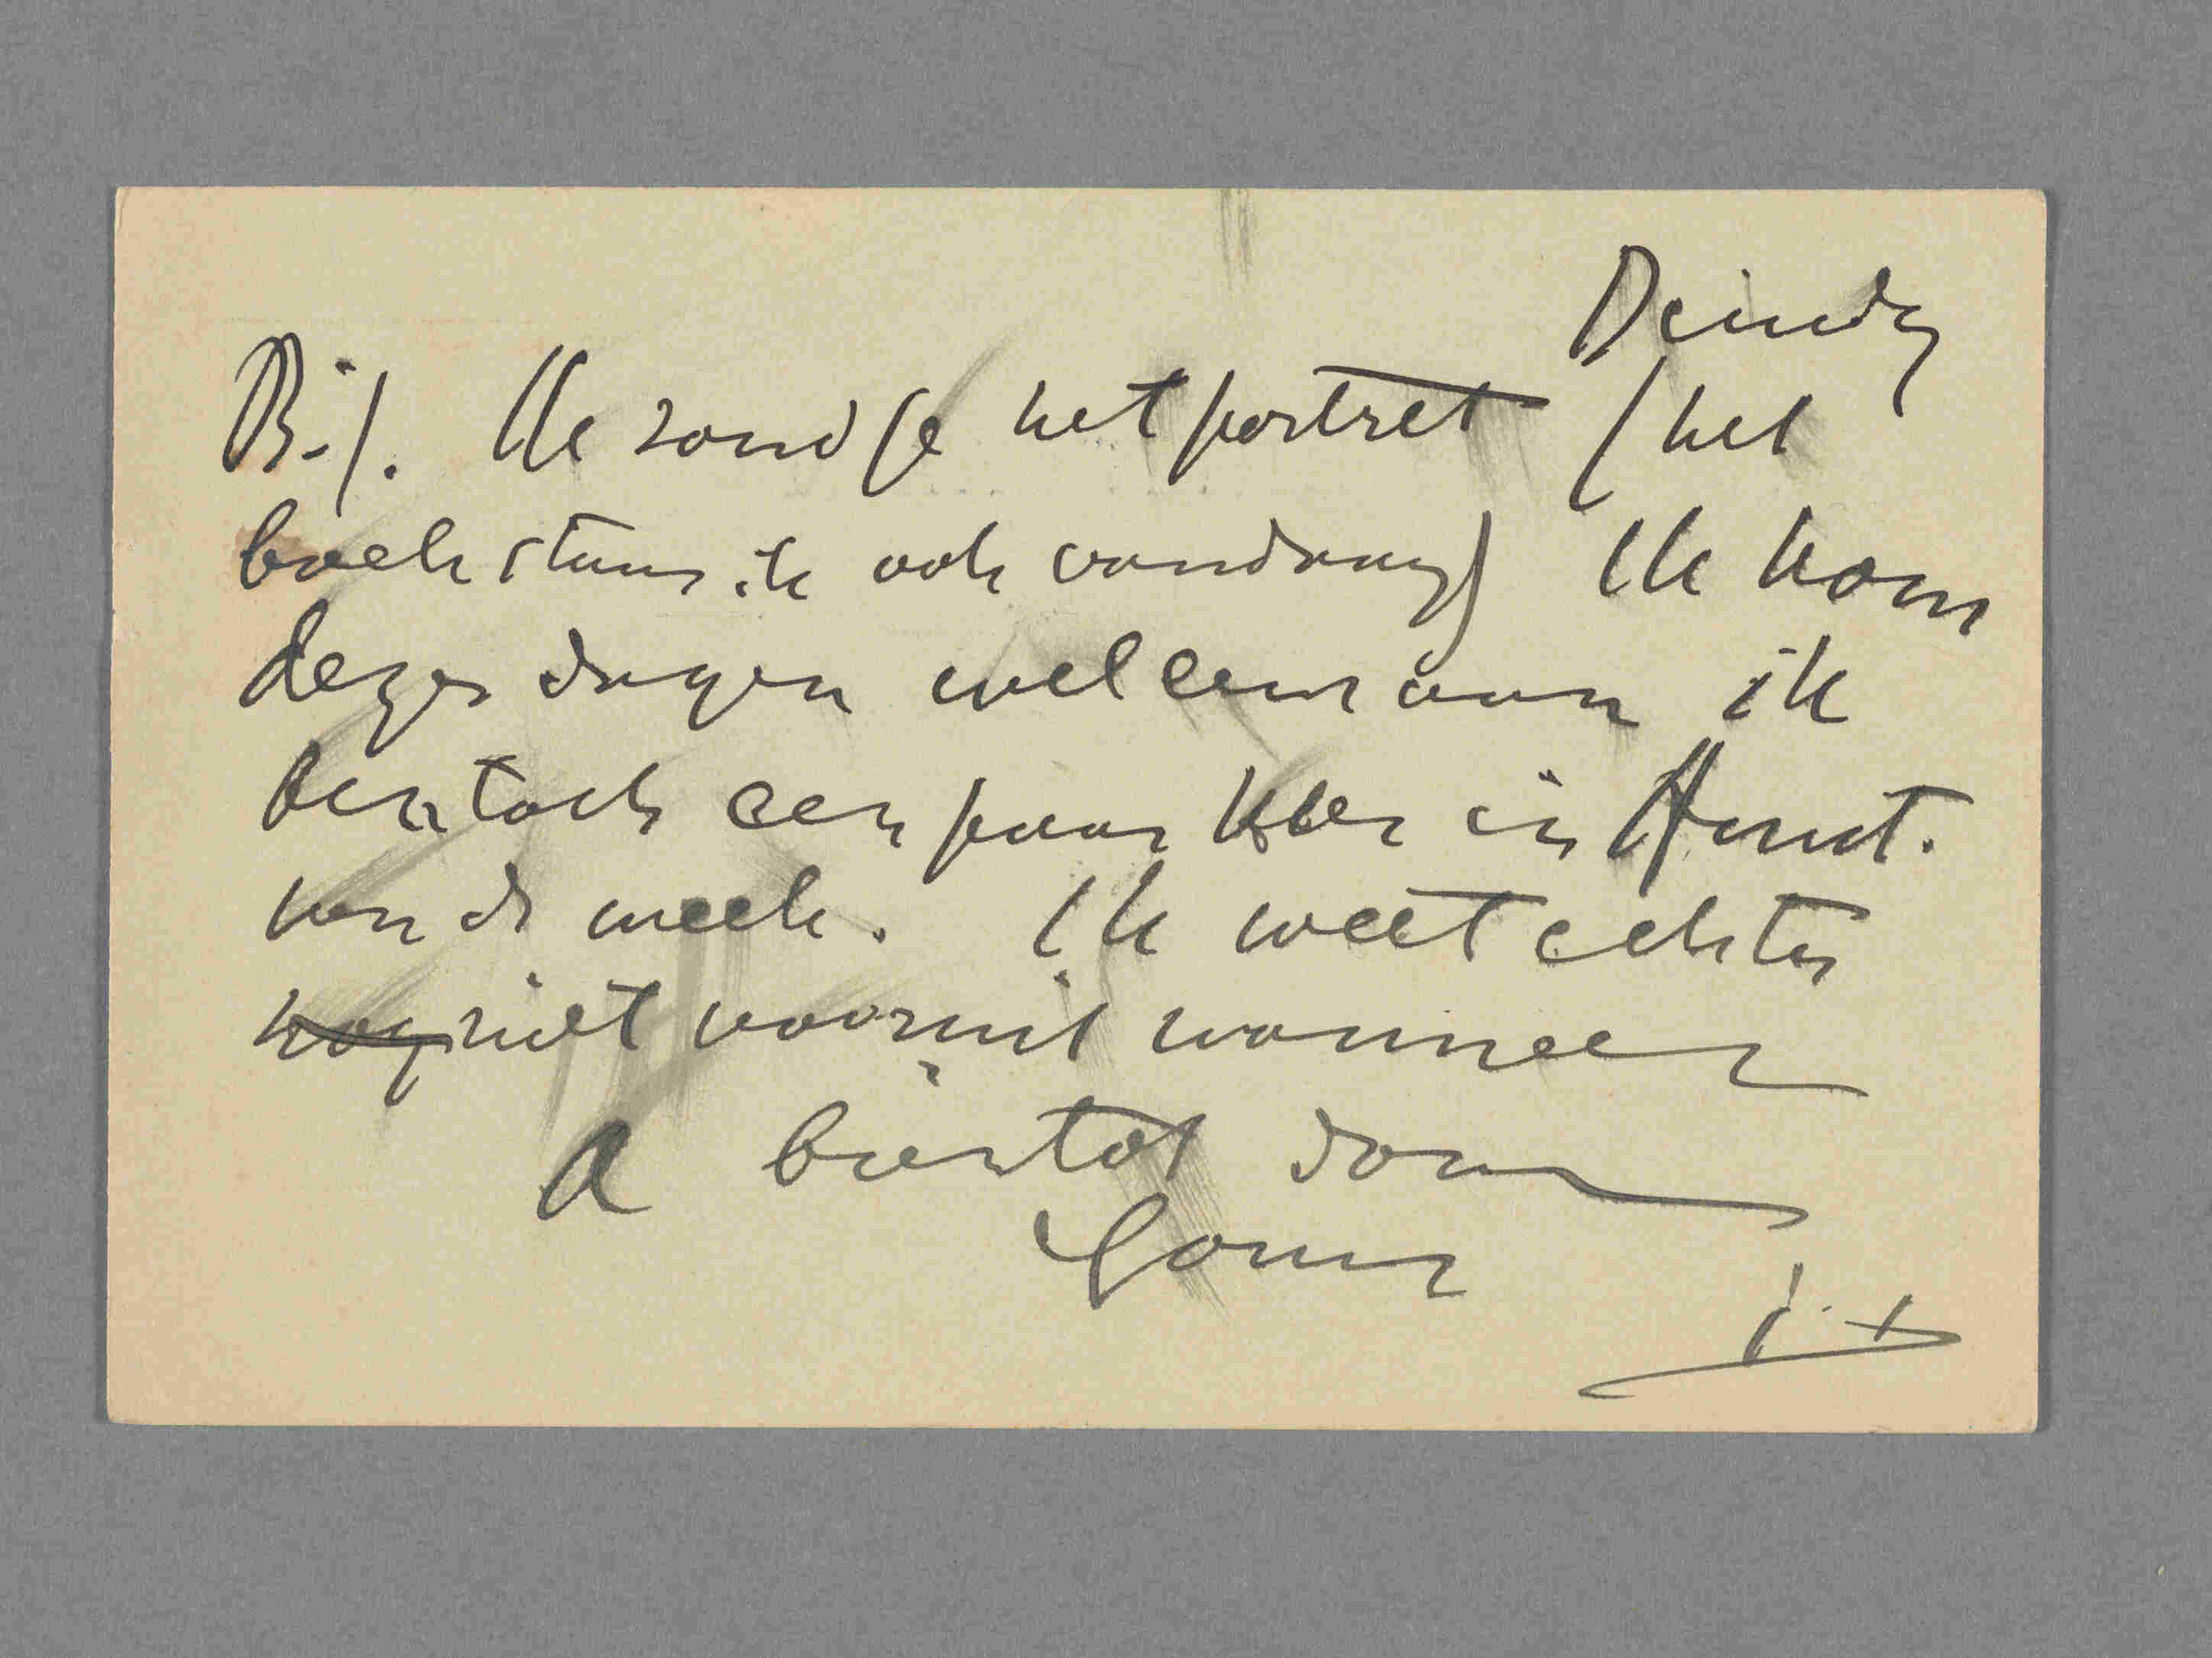 Dinsdg
B.J. Ik zond je het portret (het
boek stuur ik ook vandaag) Ik kom
dezer dagen wel eens aan ik
ben toch een paar keer in Amst.
van de week. Ik weet echter
nog niet vooruit wanneer
A bientot dan